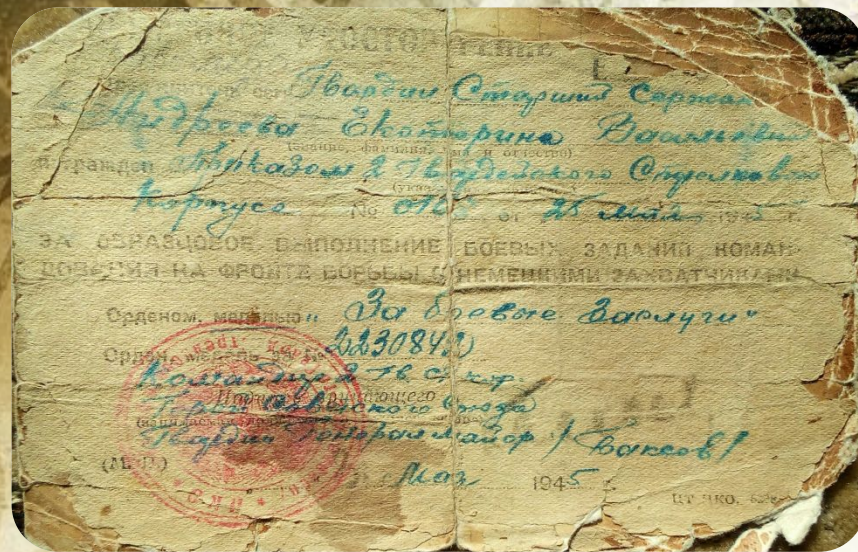 УДОСТОВЕРЕНИЕ
Гвардии Старший Сержан
Андреева Екатерина Васильевн
(звание, фамилия, имя и отчество)
награжден Приказом 2 Гвардейского Стрелкового
Корпуса № от 25 мая 1945 г.
ЗА ОБРАЗЦОВОЕ ВЫПОЛНЕНИЕ БОЕВЫХ ЗАДАНИЙ КОМАН-
ДОВАНИЯ НА ФРОНТЕ БОРЬБЫ С НЕМЕЦКИМИ ЗАХВАТЧИКАМИ
Орденом, медалью „За боевые Заслуги"
Орден, медаль за № 2230842)
Командир 2 гв. ск. кор.
Герой Советского Союза
Гвардии Генерал майор / Баксов /
(М. П.) Мая 1945 г.